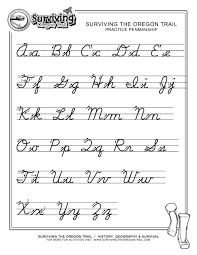 Surviving
the Oregon Trail
SURVIVING THE OREGON TRAIL
PRACTICE PENMANSHIP
Aa Bb Cc Dd Ee
Ff Gg Hh Ii Jj
Kk Ll Mm Nn
Oo Pp Qq Rr Ss
Tt Uu Vv Ww
Xx Yy Zz
SURVIVING THE OREGON TRAIL / HISTORY, GEOGRAPHY & SURVIVAL
FOR MORE FUN ACTIVITIES VISIT WWW.SURVIVINGTHEOREGONTRAIL.COM